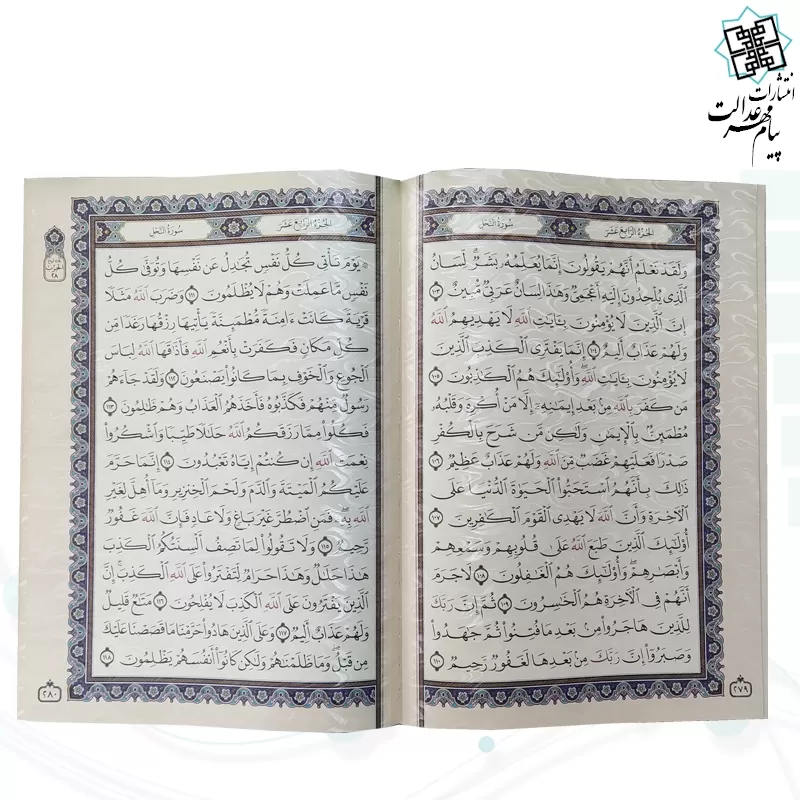 انتشارات
پیام مهر عدالت
الجُزءُ الرَّابِعَ عَشَرَ
سُورَةُ النَّحۡل
وَلَقَدۡ نَعۡلَمُ أَنَّهُمۡ يَقُولُونَ إِنَّمَا يُعَلِّمُهُۥ بَشَرٌۗ لِّسَانُ
ٱلَّذِي يُلۡحِدُونَ إِلَيۡهِ أَعۡجَمِيٌّ وَهَٰذَا لِسَانٌ عَرَبِيٌّ مُّبِينٌ ١٠٣
إِنَّ ٱلَّذِينَ لَا يُؤۡمِنُونَ بِـَٔايَٰتِ ٱللَّهِ لَا يَهۡدِيهِمُ ٱللَّهُ
وَلَهُمۡ عَذَابٌ أَلِيمٌ ١٠٤ إِنَّمَا يَفۡتَرِي ٱلۡكَذِبَ ٱلَّذِينَ
لَا يُؤۡمِنُونَ بِـَٔايَٰتِ ٱللَّهِۖ وَأُوْلَٰٓئِكَ هُمُ ٱلۡكَٰذِبُونَ ١٠٥
مَن كَفَرَ بِٱللَّهِ مِنۢ بَعۡدِ إِيمَٰنِهِۦٓ إِلَّا مَنۡ أُكۡرِهَ وَقَلۡبُهُۥ
مُطۡمَئِنُّۢ بِٱلۡإِيمَٰنِ وَلَٰكِن مَّن شَرَحَ بِٱلۡكُفۡرِ
صَدۡرٗا فَعَلَيۡهِمۡ غَضَبٌ مِّنَ ٱللَّهِ وَلَهُمۡ عَذَابٌ عَظِيمٌ ١٠٦
ذَٰلِكَ بِأَنَّهُمُ ٱسۡتَحَبُّواْ ٱلۡحَيَوٰةَ ٱلدُّنۡيَا عَلَى
ٱلۡأٓخِرَةِ وَأَنَّ ٱللَّهَ لَا يَهۡدِي ٱلۡقَوۡمَ ٱلۡكَٰفِرِينَ ١٠٧
أُوْلَٰٓئِكَ ٱلَّذِينَ طَبَعَ ٱللَّهُ عَلَىٰ قُلُوبِهِمۡ وَسَمۡعِهِمۡ
وَأَبۡصَٰرِهِمۡۖ وَأُوْلَٰٓئِكَ هُمُ ٱلۡغَٰفِلُونَ ١٠٨ لَا جَرَمَ
أَنَّهُمۡ فِي ٱلۡأٓخِرَةِ هُمُ ٱلۡخَٰسِرُونَ ١٠٩ ثُمَّ إِنَّ رَبَّكَ
لِلَّذِينَ هَاجَرُواْ مِنۢ بَعۡدِ مَا فُتِنُواْ ثُمَّ جَٰهَدُواْ
وَصَبَرُوٓاْ إِنَّ رَبَّكَ مِنۢ بَعۡدِهَا لَغَفُورٌ رَّحِيمٌ ١١٠
٢٧٩
الجُزءُ الرَّابِعَ عَشَرَ
سُورَةُ النَّحۡل
۞ يَوۡمَ تَأۡتِي كُلُّ نَفۡسٍ تُجَٰدِلُ عَن نَّفۡسِهَا وَتُوَفَّىٰ كُلُّ
نَفۡسٍ مَّا عَمِلَتۡ وَهُمۡ لَا يُظۡلَمُونَ ١١١ وَضَرَبَ ٱللَّهُ مَثَلٗا
قَرۡيَةٗ كَانَتۡ ءَامِنَةٗ مُّطۡمَئِنَّةٗ يَأۡتِيهَا رِزۡقُهَا رَغَدٗا مِّن
كُلِّ مَكَانٍ فَكَفَرَتۡ بِأَنۡعُمِ ٱللَّهِ فَأَذَٰقَهَا ٱللَّهُ لِبَاسَ
ٱلۡجُوعِ وَٱلۡخَوۡفِ بِمَا كَانُواْ يَصۡنَعُونَ ١١٢ وَلَقَدۡ جَآءَهُمۡ
رَسُولٌ مِّنۡهُمۡ فَكَذَّبُوهُ فَأَخَذَهُمُ ٱلۡعَذَابُ وَهُمۡ ظَٰلِمُونَ ١١٣
فَكُلُواْ مِمَّا رَزَقَكُمُ ٱللَّهُ حَلَٰلٗا طَيِّبٗا وَٱشۡكُرُواْ
نِعۡمَتَ ٱللَّهِ إِن كُنتُمۡ إِيَّاهُ تَعۡبُدُونَ ١١٤ إِنَّمَا حَرَّمَ
عَلَيۡكُمُ ٱلۡمَيۡتَةَ وَٱلدَّمَ وَلَحۡمَ ٱلۡخِنزِيرِ وَمَآ أُهِلَّ لِغَيۡرِ
ٱللَّهِ بِهِۦۖ فَمَنِ ٱضۡطُرَّ غَيۡرَ بَاغٍ وَلَا عَادٍ فَإِنَّ ٱللَّهَ غَفُورٌ
رَّحِيمٌ ١١٥ وَلَا تَقُولُواْ لِمَا تَصِفُ أَلۡسِنَتُكُمُ ٱلۡكَذِبَ
هَٰذَا حَلَٰلٌ وَهَٰذَا حَرَامٌ لِّتَفۡتَرُواْ عَلَى ٱللَّهِ ٱلۡكَذِبَۚ إِنَّ
ٱلَّذِينَ يَفۡتَرُونَ عَلَى ٱللَّهِ ٱلۡكَذِبَ لَا يُفۡلِحُونَ ١١٦ مَتَٰعٌ قَلِيلٌ
وَلَهُمۡ عَذَابٌ أَلِيمٌ ١١٧ وَعَلَى ٱلَّذِينَ هَادُواْ حَرَّمۡنَا مَا قَصَصۡنَا عَلَيۡكَ
مِن قَبۡلُۖ وَمَا ظَلَمۡنَٰهُمۡ وَلَٰكِن كَانُوٓاْ أَنفُسَهُمۡ يَظۡلِمُونَ ١١٨
الحزب
٢٨
٢٨٠